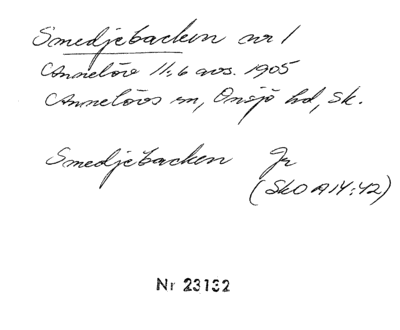 Smedjebacken nr 1
Annelöv 11:6 avs. 1905
Annelövs sn, Onsjö hd, Sk.
Smedjebacken Jr
(SkO A14:42)
Nr 23132